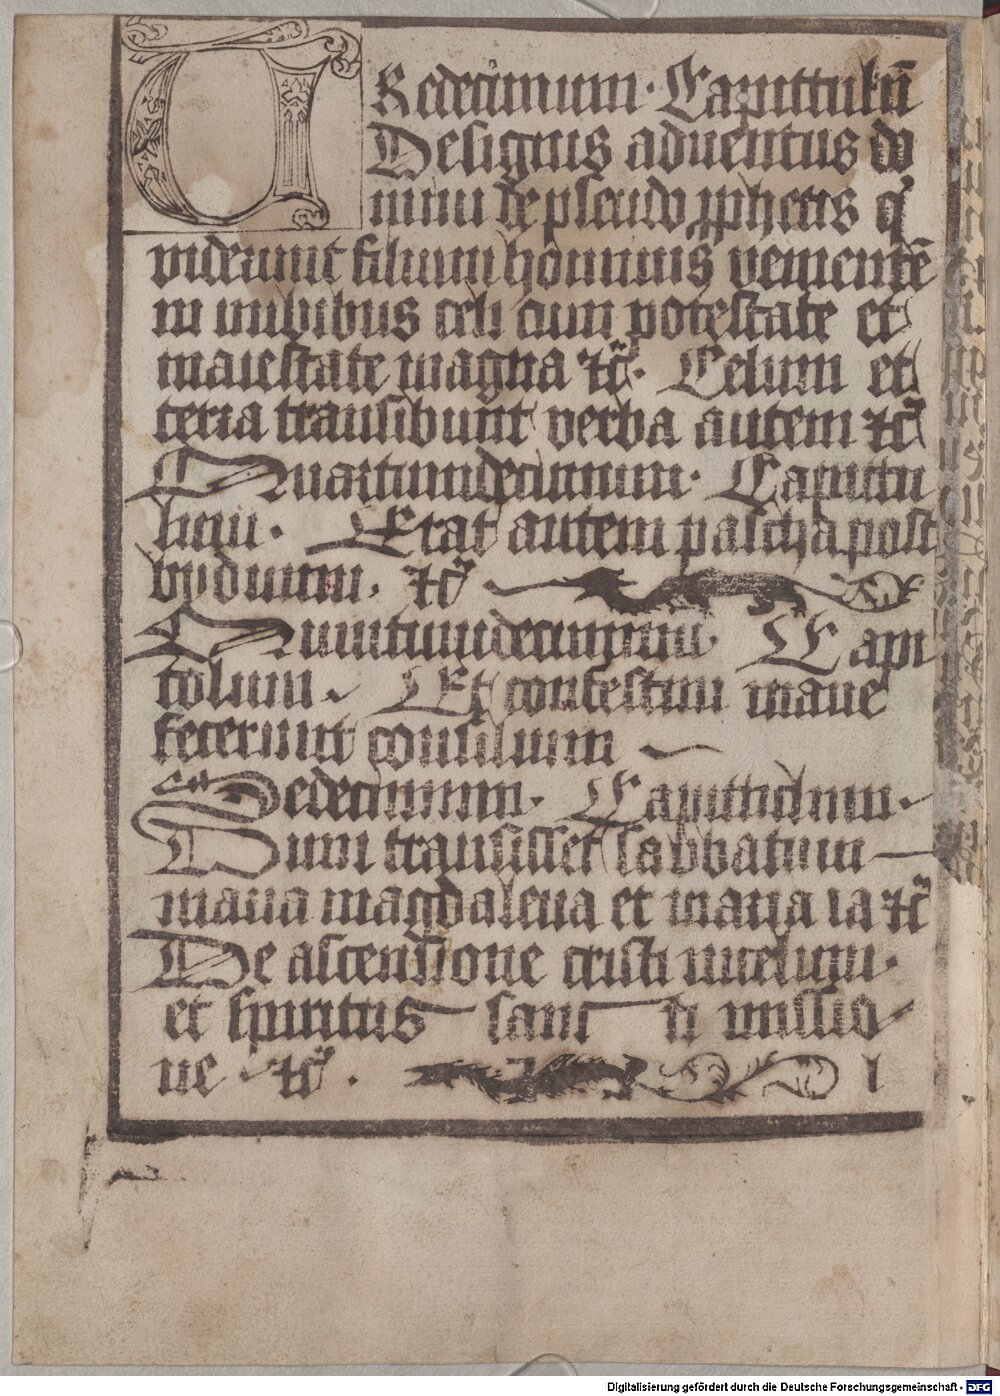 TRedecimum · Capittulū
De signis aduentus do
mini de pseudo ꝓphetis q
viderunt filium hominis venientē
in nubibus celi cum potestate et
maiestate magna ⁊c̄. Celum et
terra transibunt verba autem ⁊c̄
Quartumdecimum · Capittu
lum · Erat autem pascha post
byduum · ⁊c̄
Quintumdecimum · Capi
tolum · Et confestim mane
fecerunt consilium
Sedecimum · Capittulum ·
Dum transisset sabbatum
maria magdalena et maria ia ⁊c̄
De ascensione cristi in celum ·
et spiritus sanc ti missio
ne · ⁊c̄ · l
Digitalisierung gefördert durch die Deutsche Forschungsgemeinschaft - DFG